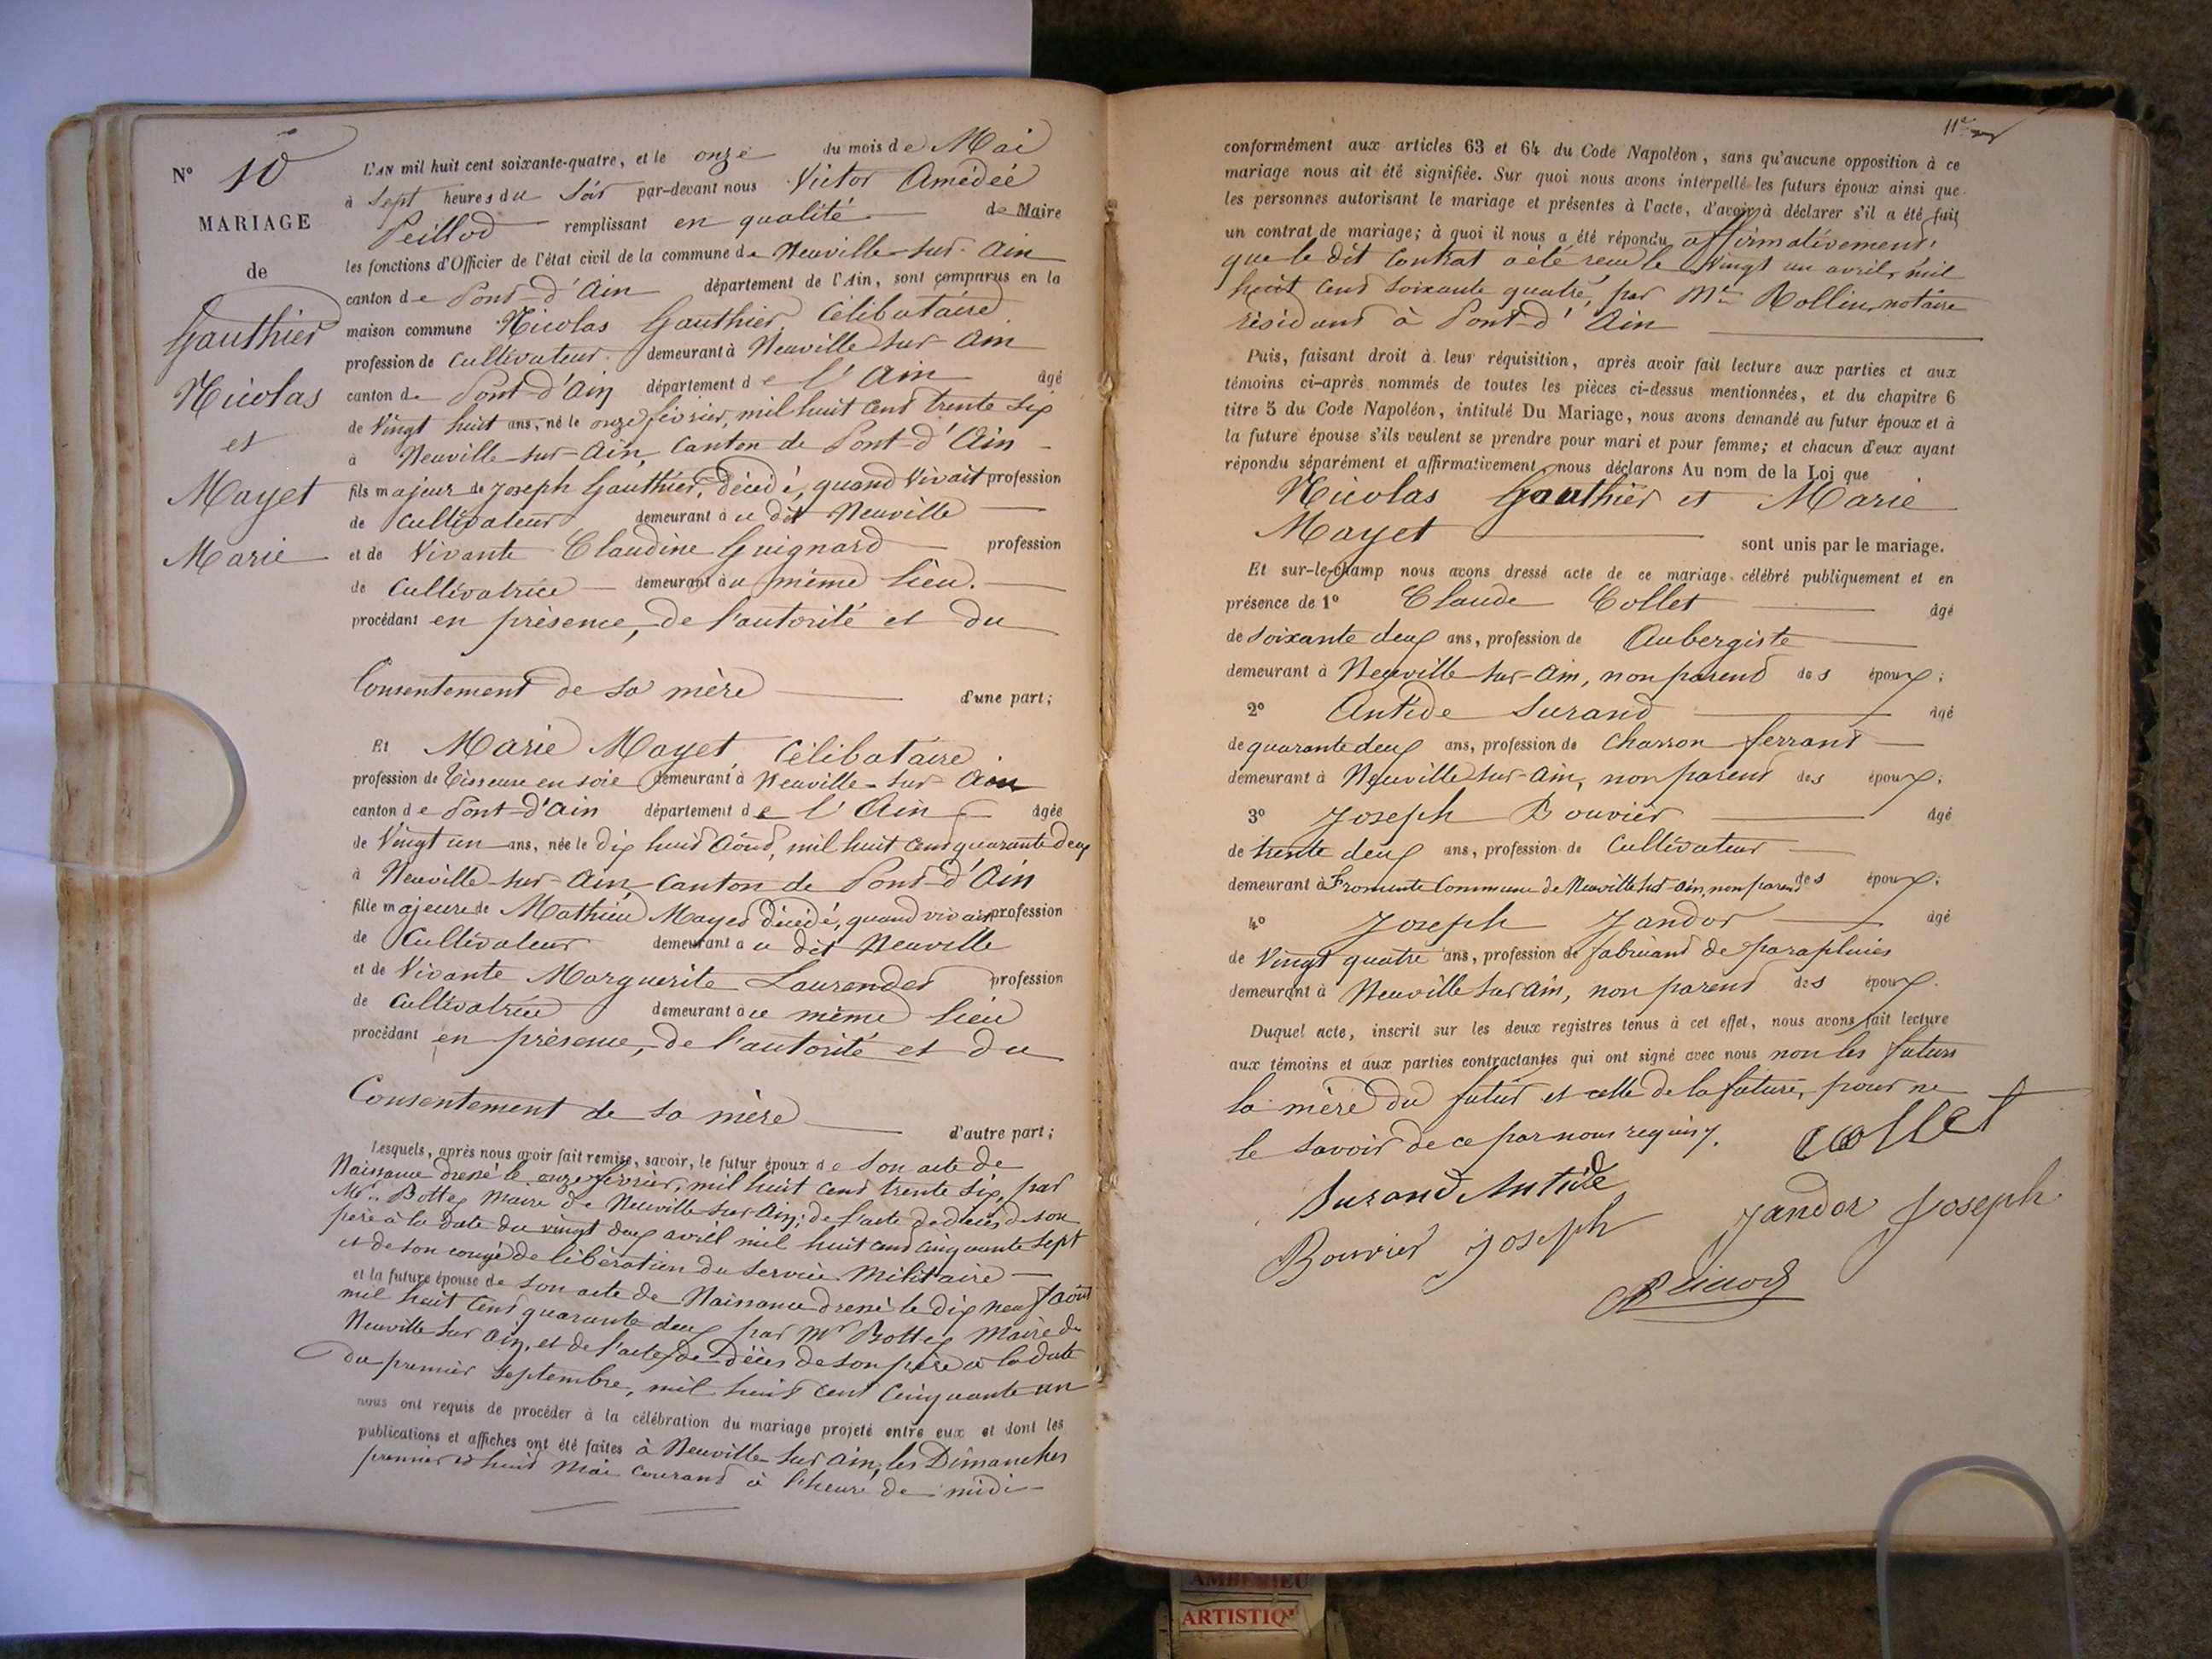 Nº 10
MARIAGE
de
Gauthier
Nicolas
et
Mayet
Marie
L'AN mil huit cent soixante-quatre, et le onze du mois de Mai
à Sept heures du Soir par-devant nous Victor Amédée
Peillod remplissant en qualité de Maire
les fonctions d'Officier de l'état civil de la commune de Neuville-sur-Ain
canton de Pont-d'Ain département de l'Ain, sont comparus en la
maison commune Nicolas Gauthier Célibataire
profession de Cultivateur demeurant à Neuville sur-Ain
canton de Pont-d'Ain département de l'Ain âgé
de Vingt huit ans, né le onze février, mil huit cent trente six
à Neuville-sur-Ain, Canton de Pont-d'Ain
fils majeur de Joseph Gauthier, décédé, quand Vivait profession
de Cultivateur demeurant à ce dit Neuville
et de Vivante Claudine Guignard profession
de Cultivatrice demeurant au même lieu.
procédant en présence, de l'autorité et du
Consentement de sa mère d'une part;
Et Marie Mayet Célibataire
profession de Tisseuse en soie demeurant à Neuville-sur-Ain
canton de Pont-d'Ain département de l'Ain âgée
de Vingt un ans, née le dix huit Août, mil huit cent quarante deux
à Neuville-sur-Ain, Canton de Pont-d'Ain
fille majeure de Mathieu Mayet décédé, quand vivait profession
de Cultivateur demeurant à ce dit Neuville
et de Vivante Marguerite Laurendet profession
de Cultivatrice demeurant au même lieu
procédant en présence, de l'autorité et du
Consentement de sa mère d'autre part;
Lesquels, après nous avoir fait remise, savoir, le futur époux de Son acte de
Naissance dressé le onze février, mil huit cent trente six, par
Mr Bottex Maire de Neuville sur Ain; de l'acte de décès de son
père à la date du vingt deux avril mil huit cent cinquante sept
et de son congé de libération du Service Militaire
et la future épouse de son acte de Naissance dressé le dix neuf août
mil huit cent quarante deux par Mr Bottex Maire de
Neuville sur Ain, et de l'acte de décès de son père à la date
du premier Septembre, mil huit cent Cinquante un
nous ont requis de procéder à la célébration du mariage projeté entre eux et dont les
publications et affiches ont été faites à Neuville sur Ain, les Dimanches
premier et huit Mai courant à l'heure de midi
11e
conformément aux articles 63 et 64 du Code Napoléon, sans qu'aucune opposition à ce
mariage nous ait été signifiée. Sur quoi nous avons interpellé les futurs époux ainsi que
les personnes autorisant le mariage et présentes à l'acte, d'avoir à déclarer s'il a été fait
un contrat de mariage; à quoi il nous a été répondu affirmativement,
que le dit Contrat a été reçu le vingt un avril, mil
huit cent soixante quatre, par Me Rollin, notaire
résidant à Pont-d'Ain
Puis, faisant droit à leur réquisition, après avoir fait lecture aux parties et aux
témoins ci-après nommés de toutes les pièces ci-dessus mentionnées, et du chapitre 6
titre 5 du Code Napoléon, intitulé Du Mariage, nous avons demandé au futur époux et à
la future épouse s'ils veulent se prendre pour mari et pour femme; et chacun d'eux ayant
répondu séparément et affirmativement nous déclarons Au nom de la Loi que
Nicolas Gauthier et Marie
Mayet sont unis par le mariage.
Et sur-le-champ nous avons dressé acte de ce mariage célébré publiquement et en
présence de 1º Claude Collet âgé
de soixante deux ans, profession de Aubergiste
demeurant à Neuville-sur-Ain, non parent des époux;
2º Antide Surand âgé
de quarante deux ans, profession de Charron ferrant
demeurant à Neuville sur-Ain, non parent des époux;
3º Joseph Bouvier âgé
de trente deux ans, profession de Cultivateur
demeurant à Fromente Commune de Neuville sur-Ain, non parent des époux;
4º Joseph Jandor âgé
de Vingt quatre ans, profession de fabricant de parapluies
demeurant à Neuville sur Ain, non parent des époux.
Duquel acte, inscrit sur les deux registres tenus à cet effet, nous avons fait lecture
aux témoins et aux parties contractantes qui ont signé avec nous non les futurs
la mère du futur et celle de la future, pour ne
le savoir de ce par nous requis.
Collet
Surand Antide
Jandor Joseph
Bouvier Joseph
AMBERIEU
ARTISTIQ